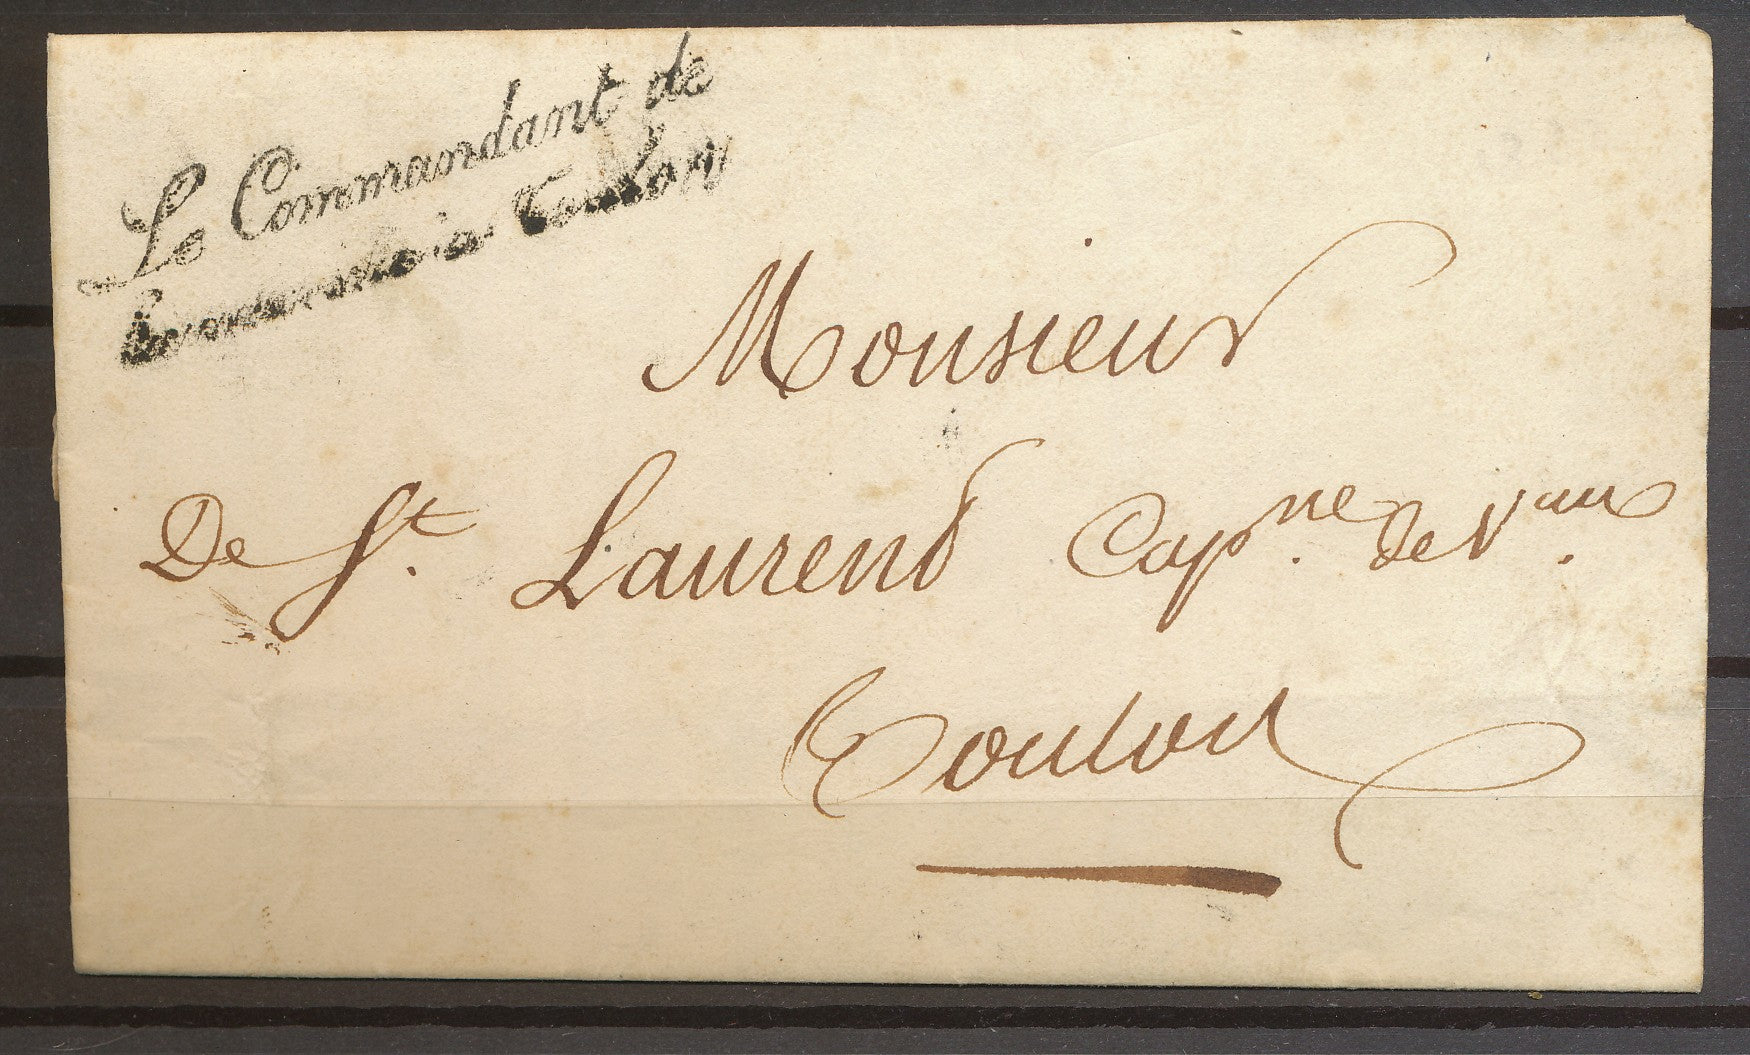 Le Commandant de
à Toulon
Monsieur
De St. Laurend Capne. de Vau.
Toulon